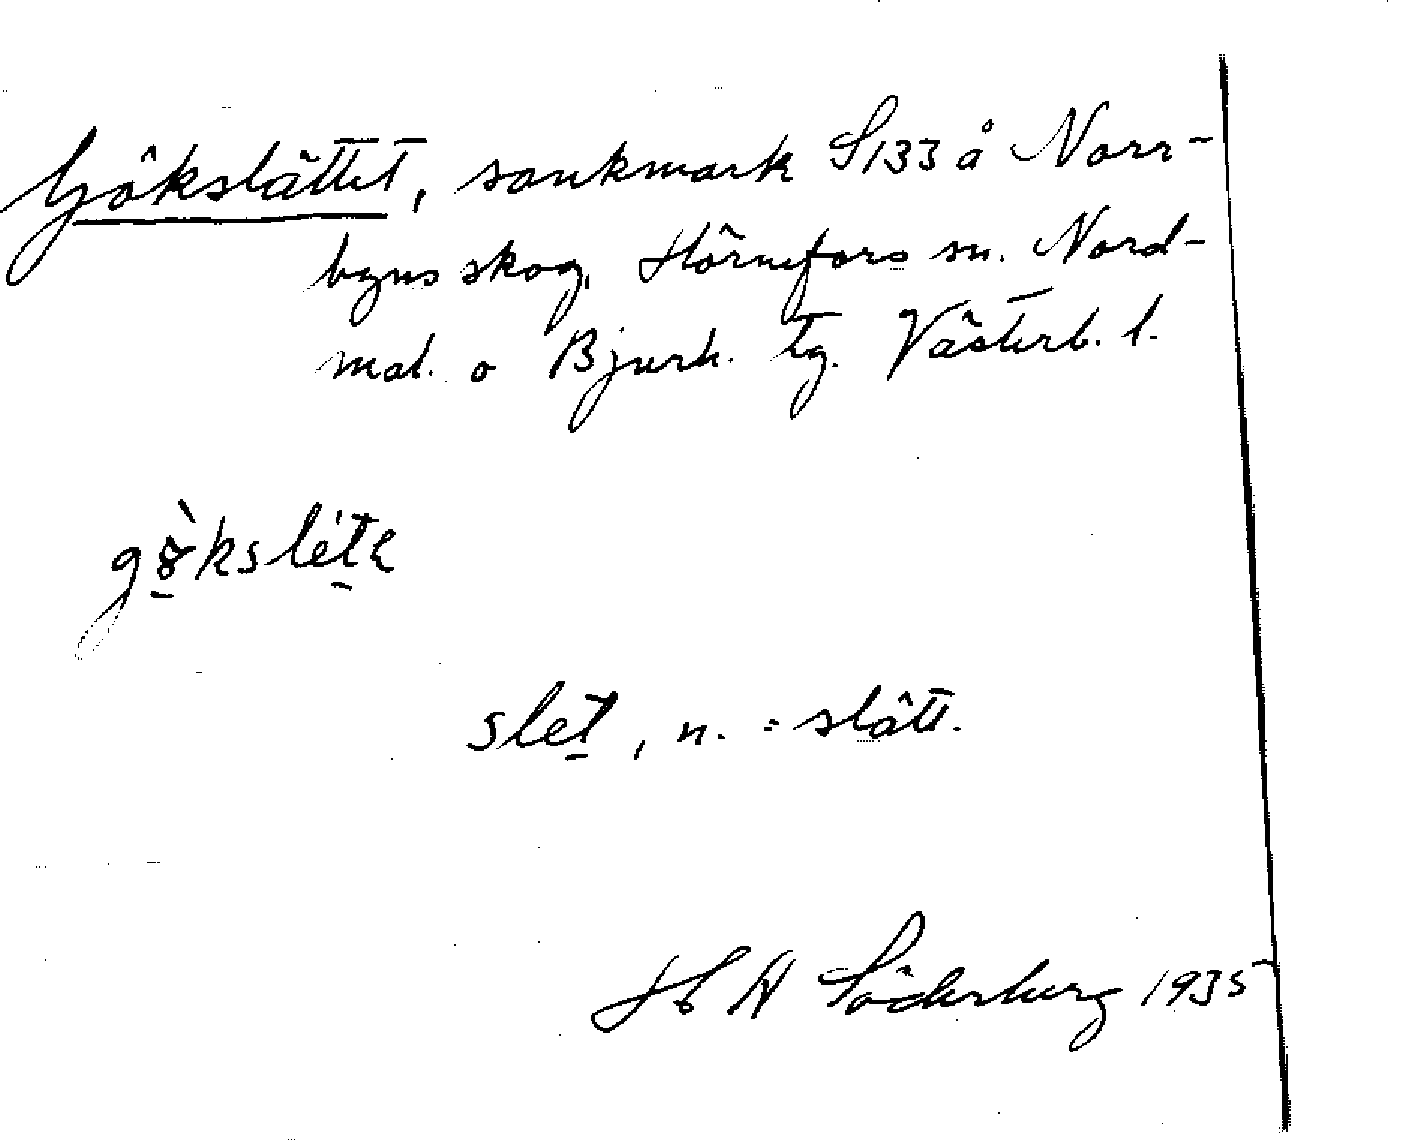 Gökslättet, sankmark S133 å Norr-
byns skog, Hörnefors sn. Nord-
mal. o Bjurh. tg. Västerb. l.
gø̀kslétɛ
slet, n. = slätt.
H A Söderberg 1935